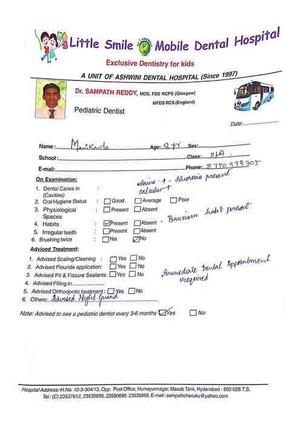 Little Smile Mobile Dental Hospital
Exclusive Dentistry for kids
A UNIT OF ASHWINI DENTAL HOSPITAL (Since 1997)
Dr. SAMPATH REDDY, MDS, FDS RCPS (Glasgow)
MFDS RCS (England)
Pediatric Dentist
Date:
Name: Age: 8 yr Sex:
School: Class: II A
E-mail: Phone:
On Examination:
1. Dental Caries in (Cavities) present
2. Oral Hygiene Status : Good Average Poor
3. Physiological Spaces : Present Absent
4. Habits : Present Absent - Bruxism habit present
5. Irregular teeth : Present Absent
6. Brushing twice Yes No
Advised Treatment:
1. Advised Scaling/Cleaning : Yes No
2. Advised Flouride application: Yes No
3. Advised Pit & Fissure Sealants: Yes No
Immediate Dental Appointment required
4. Advised Filling in
5. Advised Orthodontic treatment : Yes No
6. Others: Advised Night Guard
Note: Advised to see a pediatric dentist every 3-6 months Yes No
Hospital Address:-H.No. 10-3-304/13, Opp. Post Office, Humayunnagar, Masab Tank, Hyderabad - 500 028 T.S.